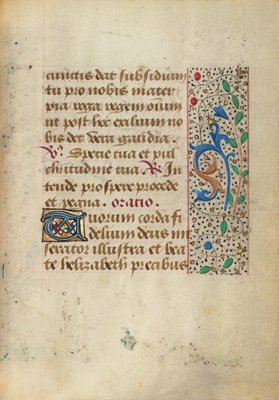 cunctis dat subsidium
tu pro nobis mater
pia roga regem omium
ut post hec exilium no
bis det vera gaudia.
V. Specie tua et pul
chritudine tua R. In
tende prospere procede
et regna. oratio.
Tuorum corda fi
delium deus mi
serator illustra et bea
te helizabeth precibus